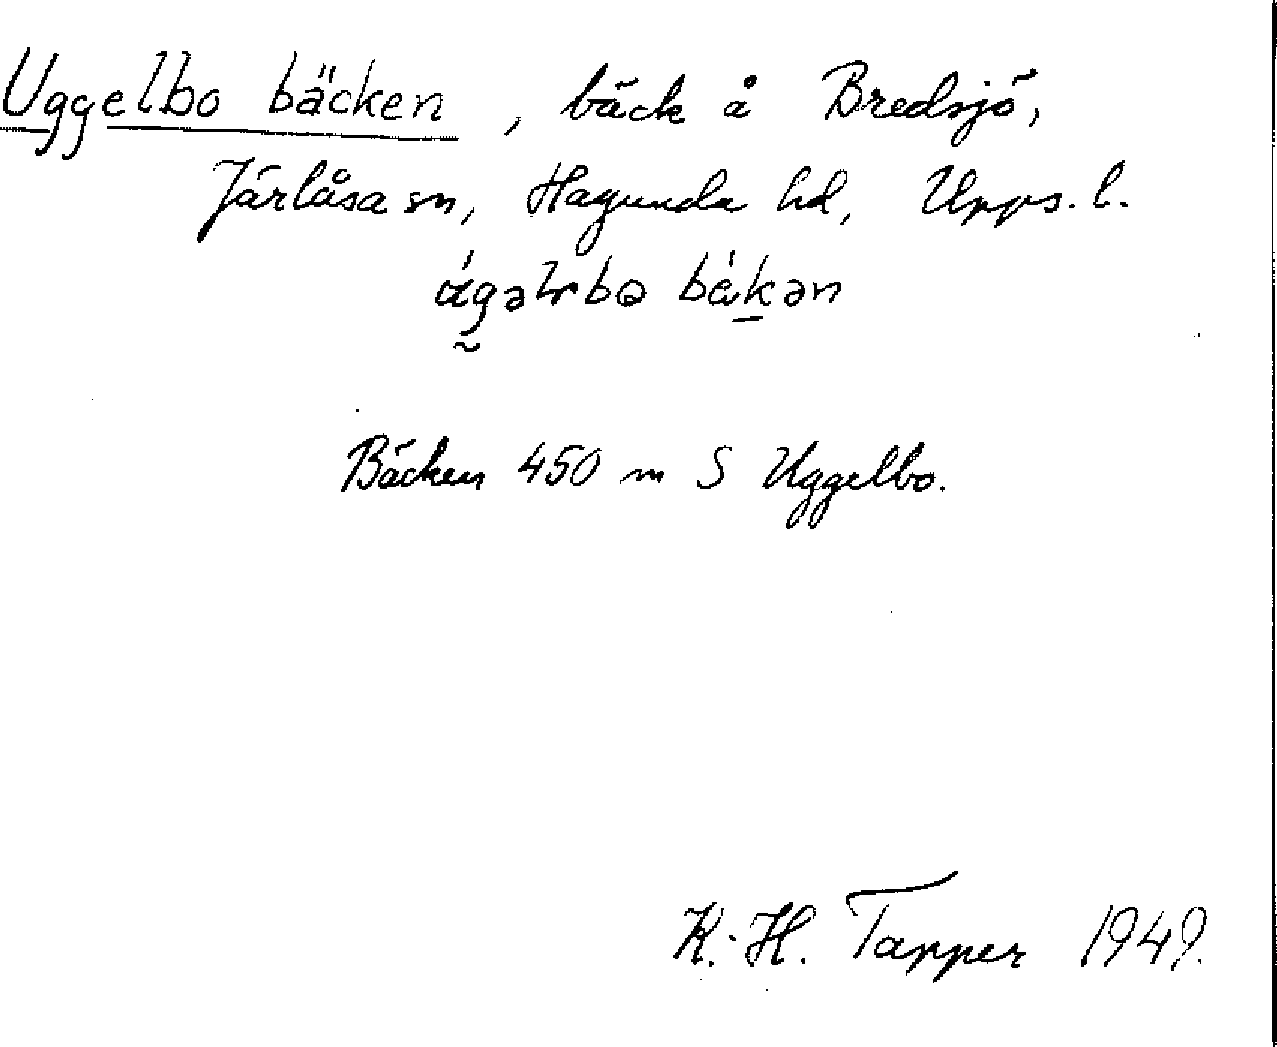 Uggelbo bäcken, bäck å Bredsjö,
Järlåsa sn, Hagunda hd, Upps. l.
Bäcken 450 m S Uggelbo.
K.-H. Tapper 1949.